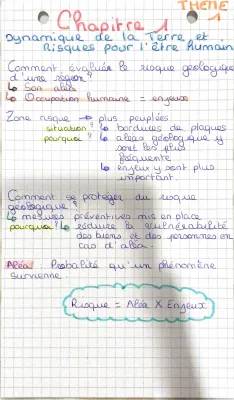 THEME 1
Chapitre 1
Dynamique de la Terre et
Risques pour l'être humain
Comment évaluée le risque géologique
d'une région?
↳ son aléa
↳ Occupation humaine = enjeux
Zone risque → plus peuplées
situation? ↳ bordures de plaques
pourquoi? ↳ aléas géologique y
sont les plus
fréquente
↳ enjeux y sont plus
important
Comment se protéger du risque
géologique?
↳ mesures préventives mis en place
pourquoi? ↳ réduire la vulnérabilité
des biens et des personnes en
cas d'aléa.
Aléa: Probalité qu'un phénomène
survienne
Risque = Aléa X Enjeux